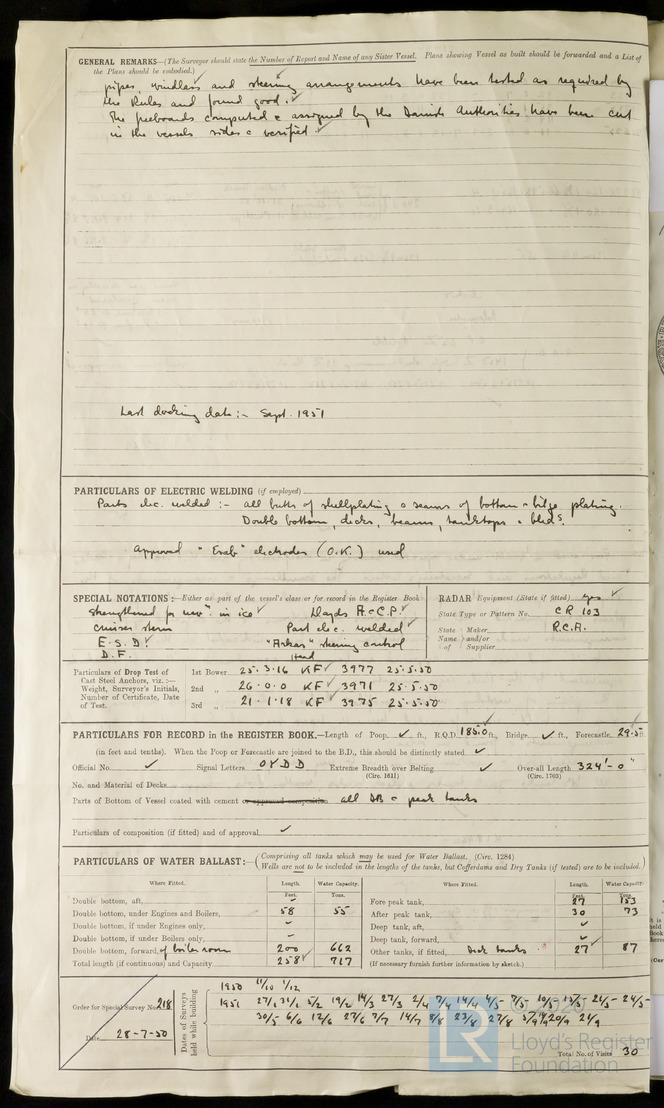 GENERAL REMARKS—(The Surveyor should state the Number of Report and Name of any Sister Vessel. Plans showing Vessel as built should be forwarded and a List of
the Plans should be embodied.)
pipes, windlass and steering arrangements have been tested as required by
the Rules and found good.
The freeboards computed & assigned by the Danish Authorities have been cut
in the vessels sides & verified
Last docking date :- Sept. 1951
PARTICULARS OF ELECTRIC WELDING (if employed)
Parts elec. welded :- all butts of shellplating & seams of bottom & bilge plating.
Double bottom, decks, beams, tanktops & blkds.
Approved "Esab" electrodes (O.K.) used
SPECIAL NOTATIONS:—Either as part of the vessel's class or for record in the Register Book
Strengthened for nav. in ice Lloyds A.&C.P.
cruiser stern Part elec. welded
E.S.D. "Arkas" steering control
D.F.
RADAR Equipment (State if fitted) yes
State Type or Pattern No. CR 103
State Name of Maker and/or Supplier R.C.A.
Particulars of Drop Test of Cast Steel Anchors, viz.:— Weight, Surveyor's Initials, Number of Certificate, Date of Test.
1st Bower 25.3.16 KF 3977 25.5.50
2nd „ 26.0.0 KF 3971 25.5.50
3rd „ 21.1.18 KF 3975 25.5.50
PARTICULARS FOR RECORD in the REGISTER BOOK.—Length of Poop ft., R.Q.D. 185.0 ft., Bridge ft., Forecastle 29.5 ft.
(in feet and tenths). When the Poop or Forecastle are joined to the B.D., this should be distinctly stated
Official No. Signal Letters OYDD Extreme Breadth over Belting (Circ. 1611) Over-all Length 324'-0" (Circ. 1703)
No. and Material of Decks
Parts of Bottom of Vessel coated with cement or approved composition all DB & peak tanks
Particulars of composition (if fitted) and of approval
PARTICULARS OF WATER BALLAST:—(Comprising all tanks which may be used for Water Ballast. (Circ. 1284)
Wells are not to be included in the lengths of the tanks, but Cofferdams and Dry Tanks (if tested) are to be included.)
Where Fitted. Length. Feet. Water Capacity. Tons.
Double bottom, aft,
Double bottom, under Engines and Boilers, 58 55
Double bottom, if under Engines only,
Double bottom, if under Boilers only,
Double bottom, forward, of boiler room 200 662
Total length (if continuous) and Capacity 258 717
Where Fitted. Length. Feet. Water Capacity. Tons.
Fore peak tank, 27 153
After peak tank, 30 73
Deep tank, aft,
Deep tank, forward,
Other tanks, if fitted, Deck tanks 27 87
(If necessary furnish further information by sketch.)
Order for Special Survey No. 218
Date 28-7-50
Dates of Surveys held while building
1950 11/10 1/12
1951 27/1 31/1 5/2 19/2 14/3 27/3 2/4 7/4 14/4 4/5 7/5 10/5 15/5 21/5 24/5
30/5 6/6 12/6 27/6 7/7 14/7 8/8 23/8 27/8 3/9 14/9 20/9 21/9
Total No. of Visits 30
LR
Lloyd's Register
Foundation